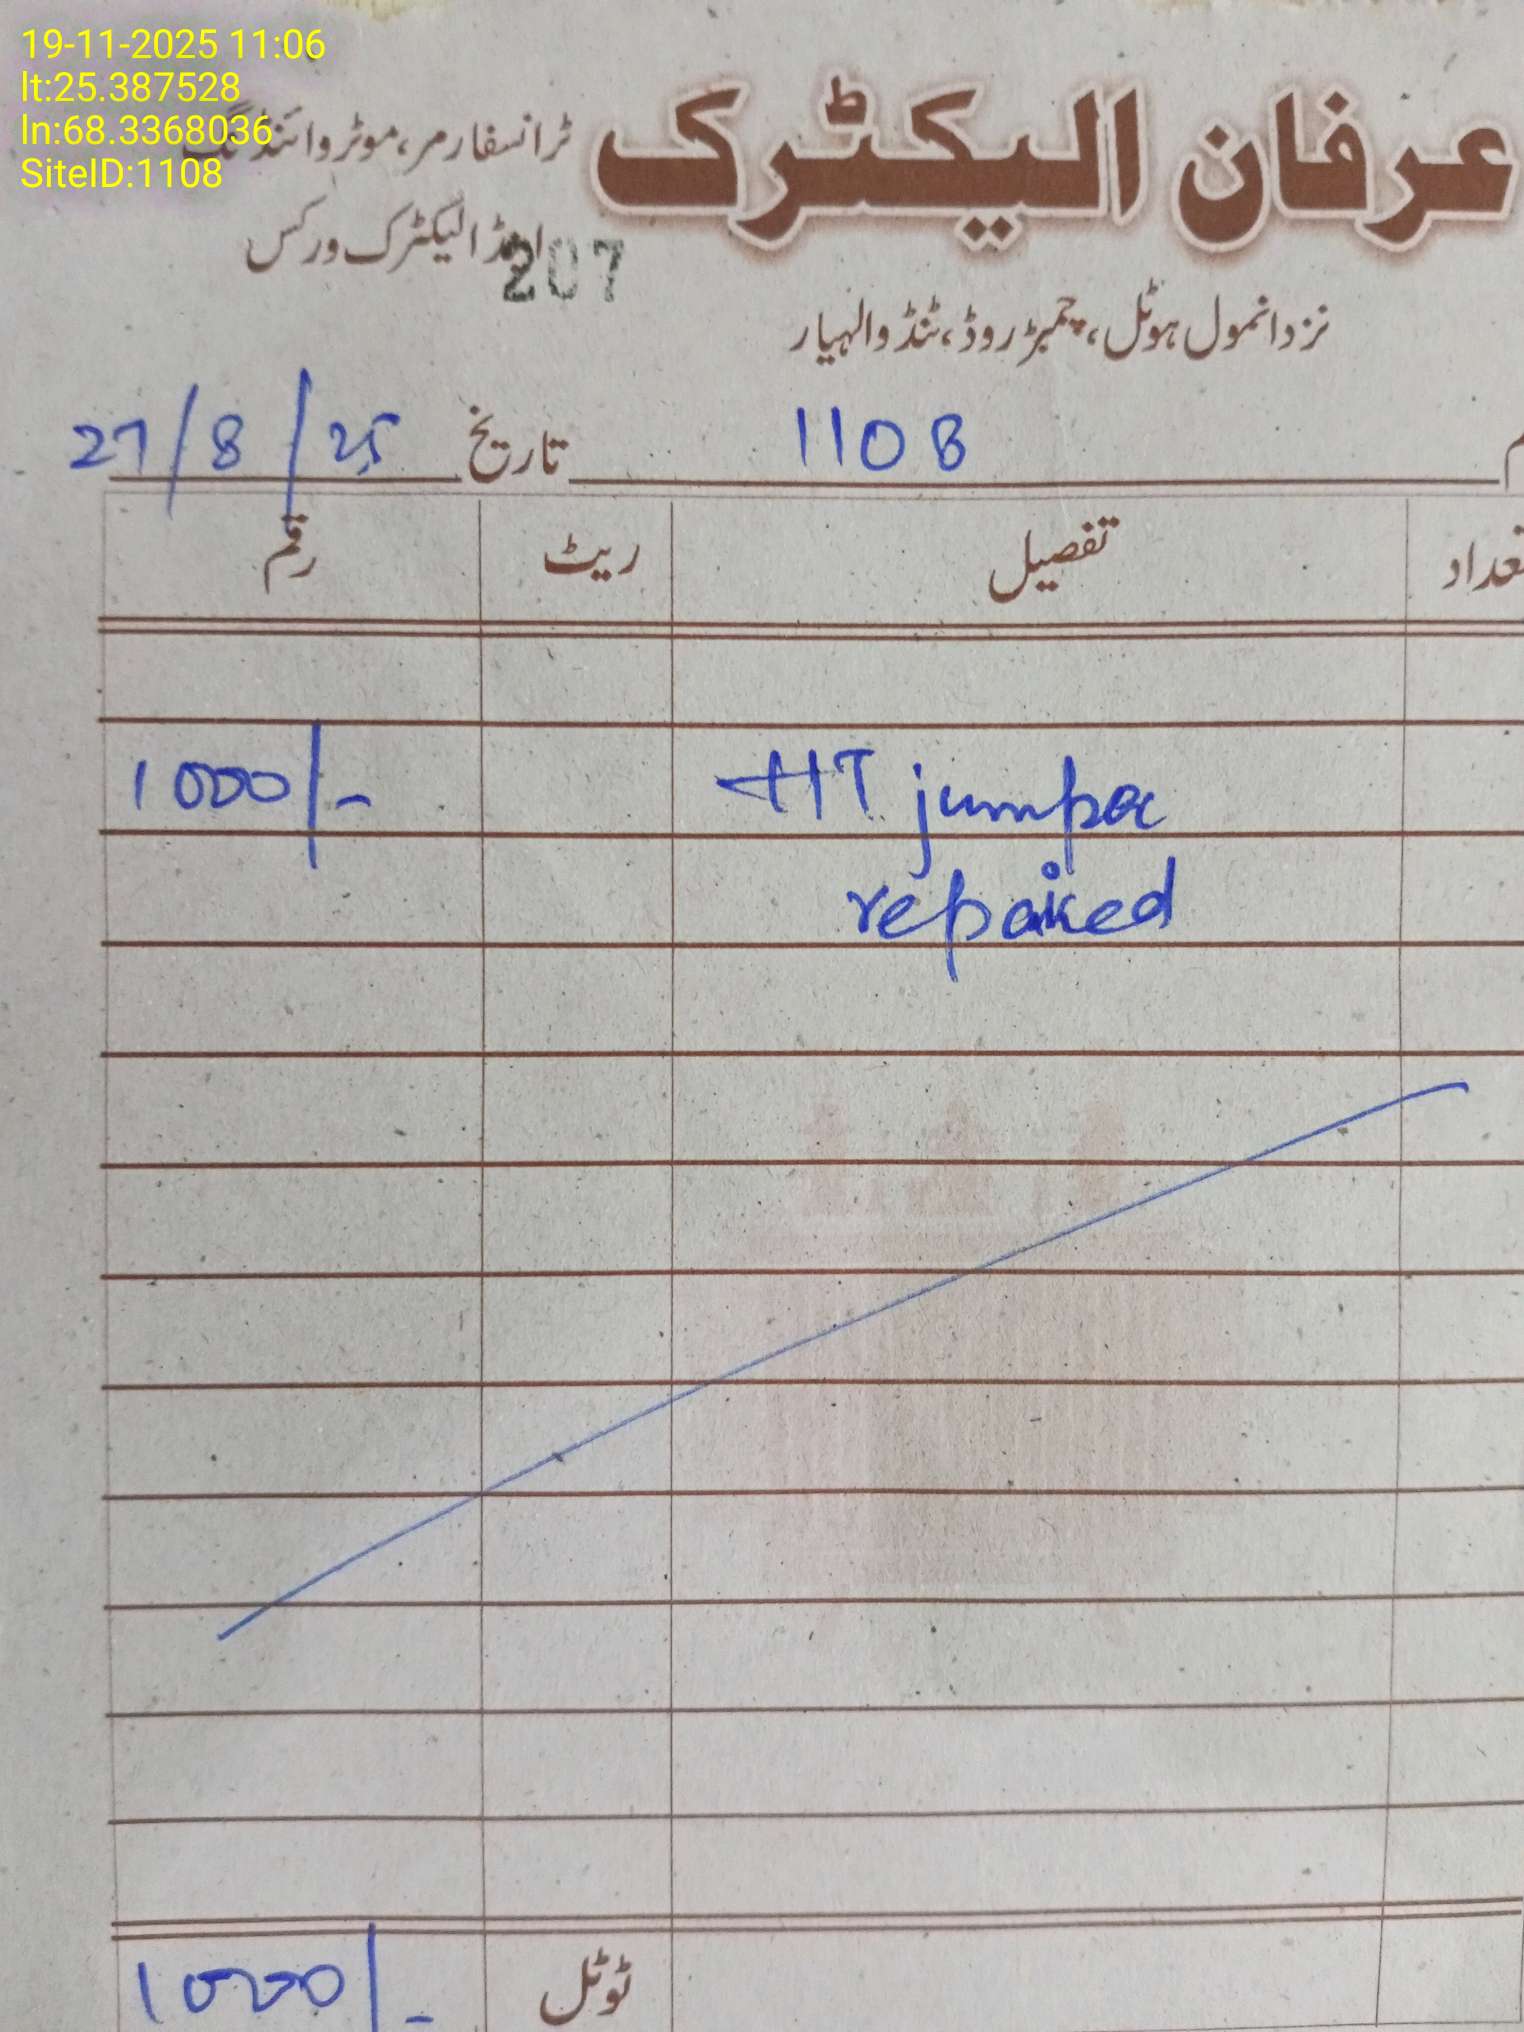 19-11-2025 11:06
lt:25.387528
ln:68.3368036
SiteID:1108
عرفان الیکٹرک
ٹرانسفارمر، موٹر وائنڈنگ
اینڈ الیکٹرک ورکس
207
نزد انمول ہوٹل، چمبڑ روڈ، ٹنڈوالہیار
1108
تاریخ 27/8/25
تعداد تفصیل ریٹ رقم
HT jumper 1000/-
repaired
ٹوٹل 1000/-